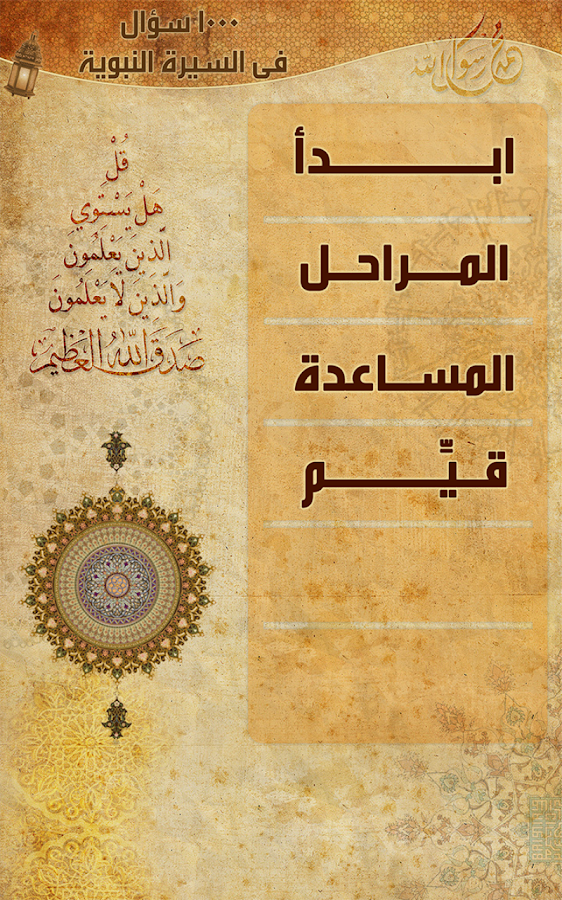 ١٠٠٠ سؤال
فى السيرة النبوية
محمد رسول الله
ابدأ
المراحل
المساعدة
قيِّم
قُلْ
هَلْ يَسْتَوِي
الَّذِينَ يَعْلَمُونَ
وَالَّذِينَ لَا يَعْلَمُونَ
صَدَقَ اللَّهُ الْعَظِيمُ